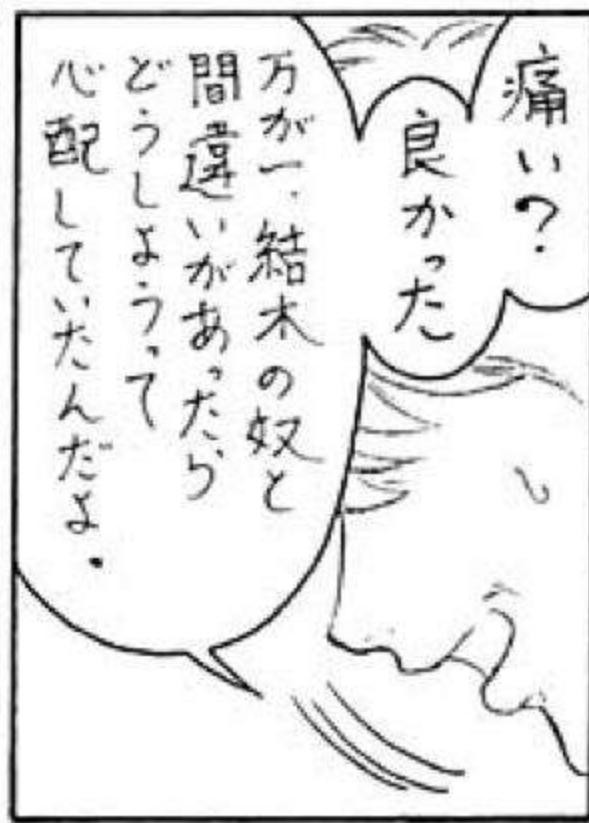 痛い?
良かった
万が一、結木の奴と
間違いがあったら
どうしようって
心配していたんだよ.